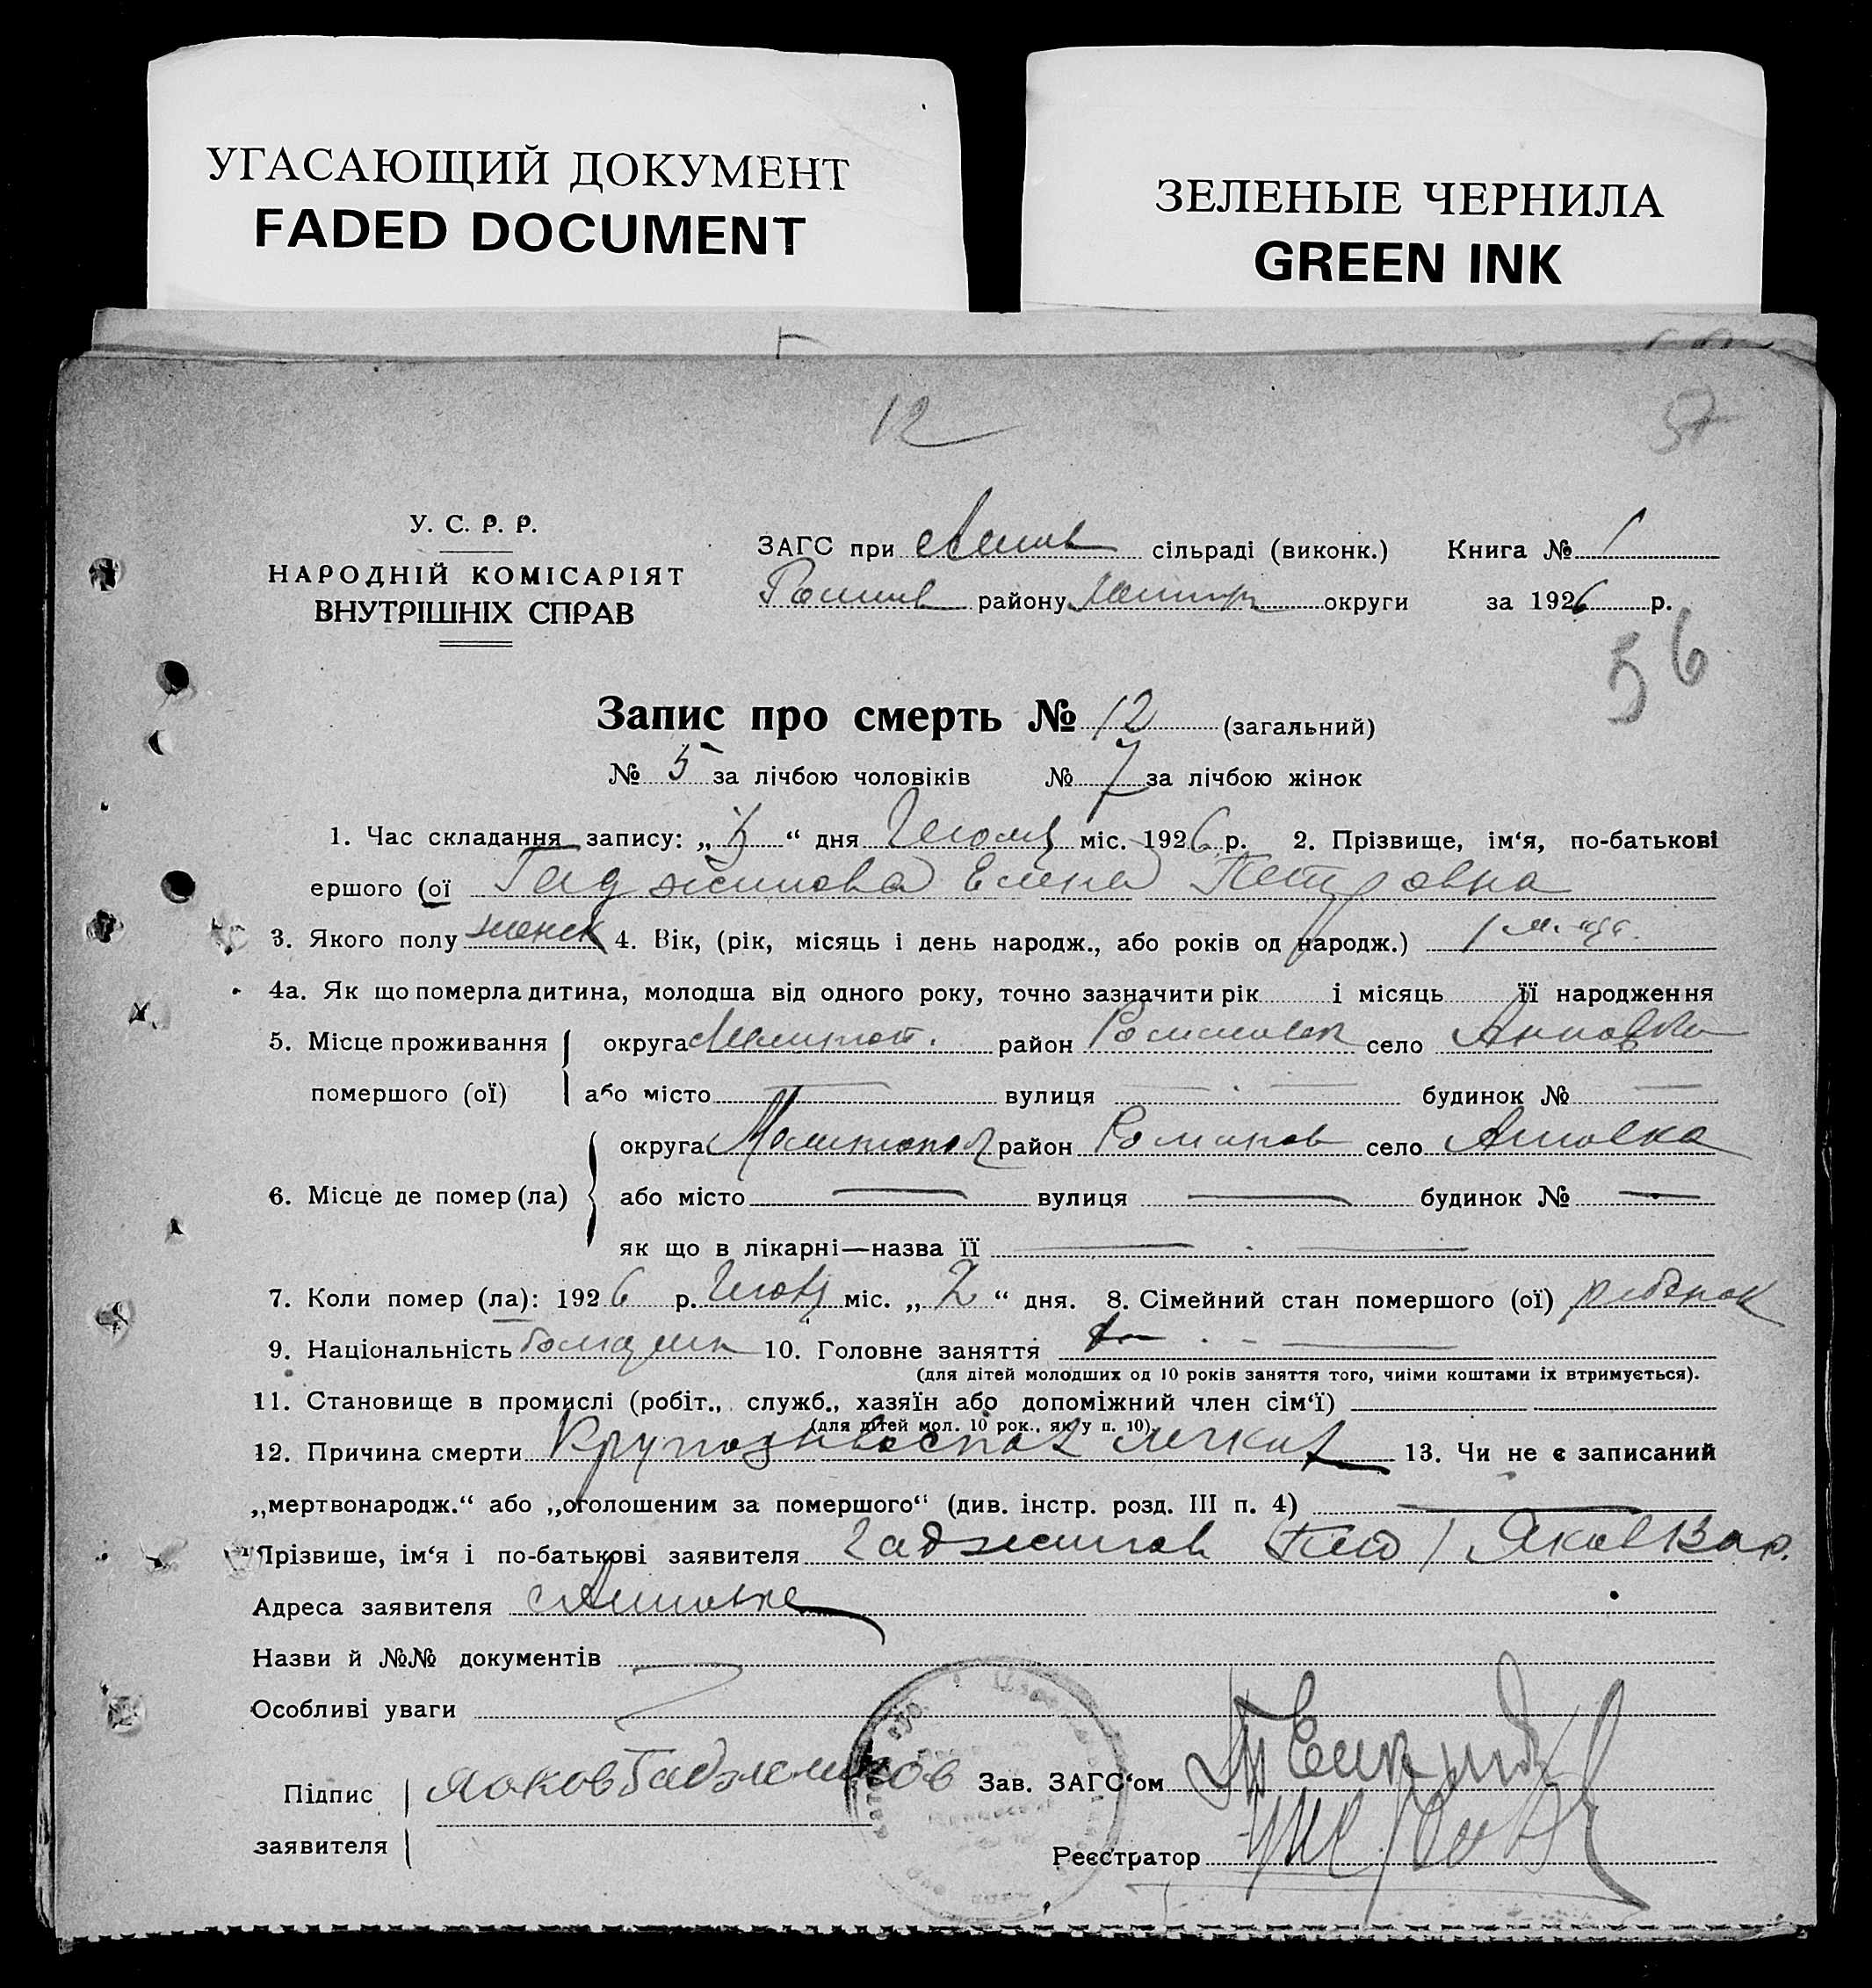 УГАСАЮЩИЙ ДОКУМЕНТ
FADED DOCUMENT
ЗЕЛЕНЫЕ ЧЕРНИЛА
GREEN INK
12
57
У. С. Р. Р.
НАРОДНІЙ КОМІСАРІЯТ
ВНУТРІШНІХ СПРАВ
ЗАГС при сільраді (виконк.) Книга № 1
району округи за 1926 р.
56
Запис про смерть № 12 (загальний)
№ 5 за лічбою чоловіків № 7 за лічбою жінок
1. Час складання запису: „ “ дня міс. 1926 р. 2. Прізвище, ім‘я, по-батькові
ершого (ої Гаджинова Елена Петровна
3. Якого полу женск 4. Вік, (рік, місяць і день народж., або років од народж.) 1
4а. Як що померла дитина, молодша від одного року, точно зазначити рік і місяць її народження
5. Місце проживання округа Мелитоп. район село Анновка
помершого (ої) або місто вулиця будинок №
округа Мелитопол район Романов село Анновка
6. Місце де помер (ла) або місто вулиця будинок №
як що в лікарні—назва її
7. Коли помер (ла): 1926 р. міс. „ 2 “ дня. 8. Сімейний стан помершого (ої) ребенок
9. Національність 10. Головне заняття
(для дітей молодших од 10 років заняття того, чиїми коштами їх втримується).
11. Становище в промислі (робіт., служб., хазяїн або допоміжний член сім‘ї)
(для дітей мол. 10 рок., як у п. 10)
12. Причина смерти легких 13. Чи не є записаний
„мертвонародж.“ або „оголошеним за помершого“ (див. інстр. розд. III п. 4)
Прізвише, ім‘я і по-батькові заявителя Гаджинов Яков
Адреса заявителя
Назви й №№ документів
Особливі уваги
Підпис Яоков Гаджинов Зав. ЗАГС‘ом
заявителя
Реєстратор